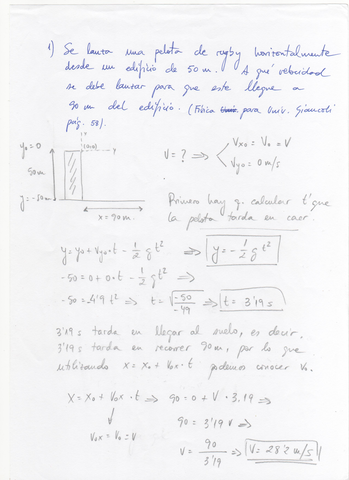 1) Se lanza una pelota de rugby horizontalmente
desde un edificio de 50 m. A qué velocidad
se debe lanzar para que este llegue a
90 m del edificio. (Física para Univ. Giancoli
pág. 58).
y₀ = 0
(0,0)
x
y
50m
y = -50m
x = 90m.
V = ? ⇒
Vx₀ = V₀ = V
Vy₀ = 0 m/s
Primero hay q. calcular t' que
la pelota tarda en caer.
y = y₀ + Vy₀·t - 1/2 g t² ⇒ y = - 1/2 g t²
-50 = 0 + 0·t - 1/2 g t² ⇒
-50 = -4'9 t² ⇒ t = √(-50/-49) ⇒ t = 3'19 s
3'19 s tarda en llegar al suelo, es decir,
3'19 s tarda en recorrer 90m, por lo que
utilizando x = x₀ + V₀x·t podemos conocer V₀.
X = X₀ + V₀x·t ⇒ 90 = 0 + V·3.19 ⇒
V₀x = V₀ = V
90 = 3'19 V ⇒
V = 90/3'19 ⇒ V = 28'2 m/s